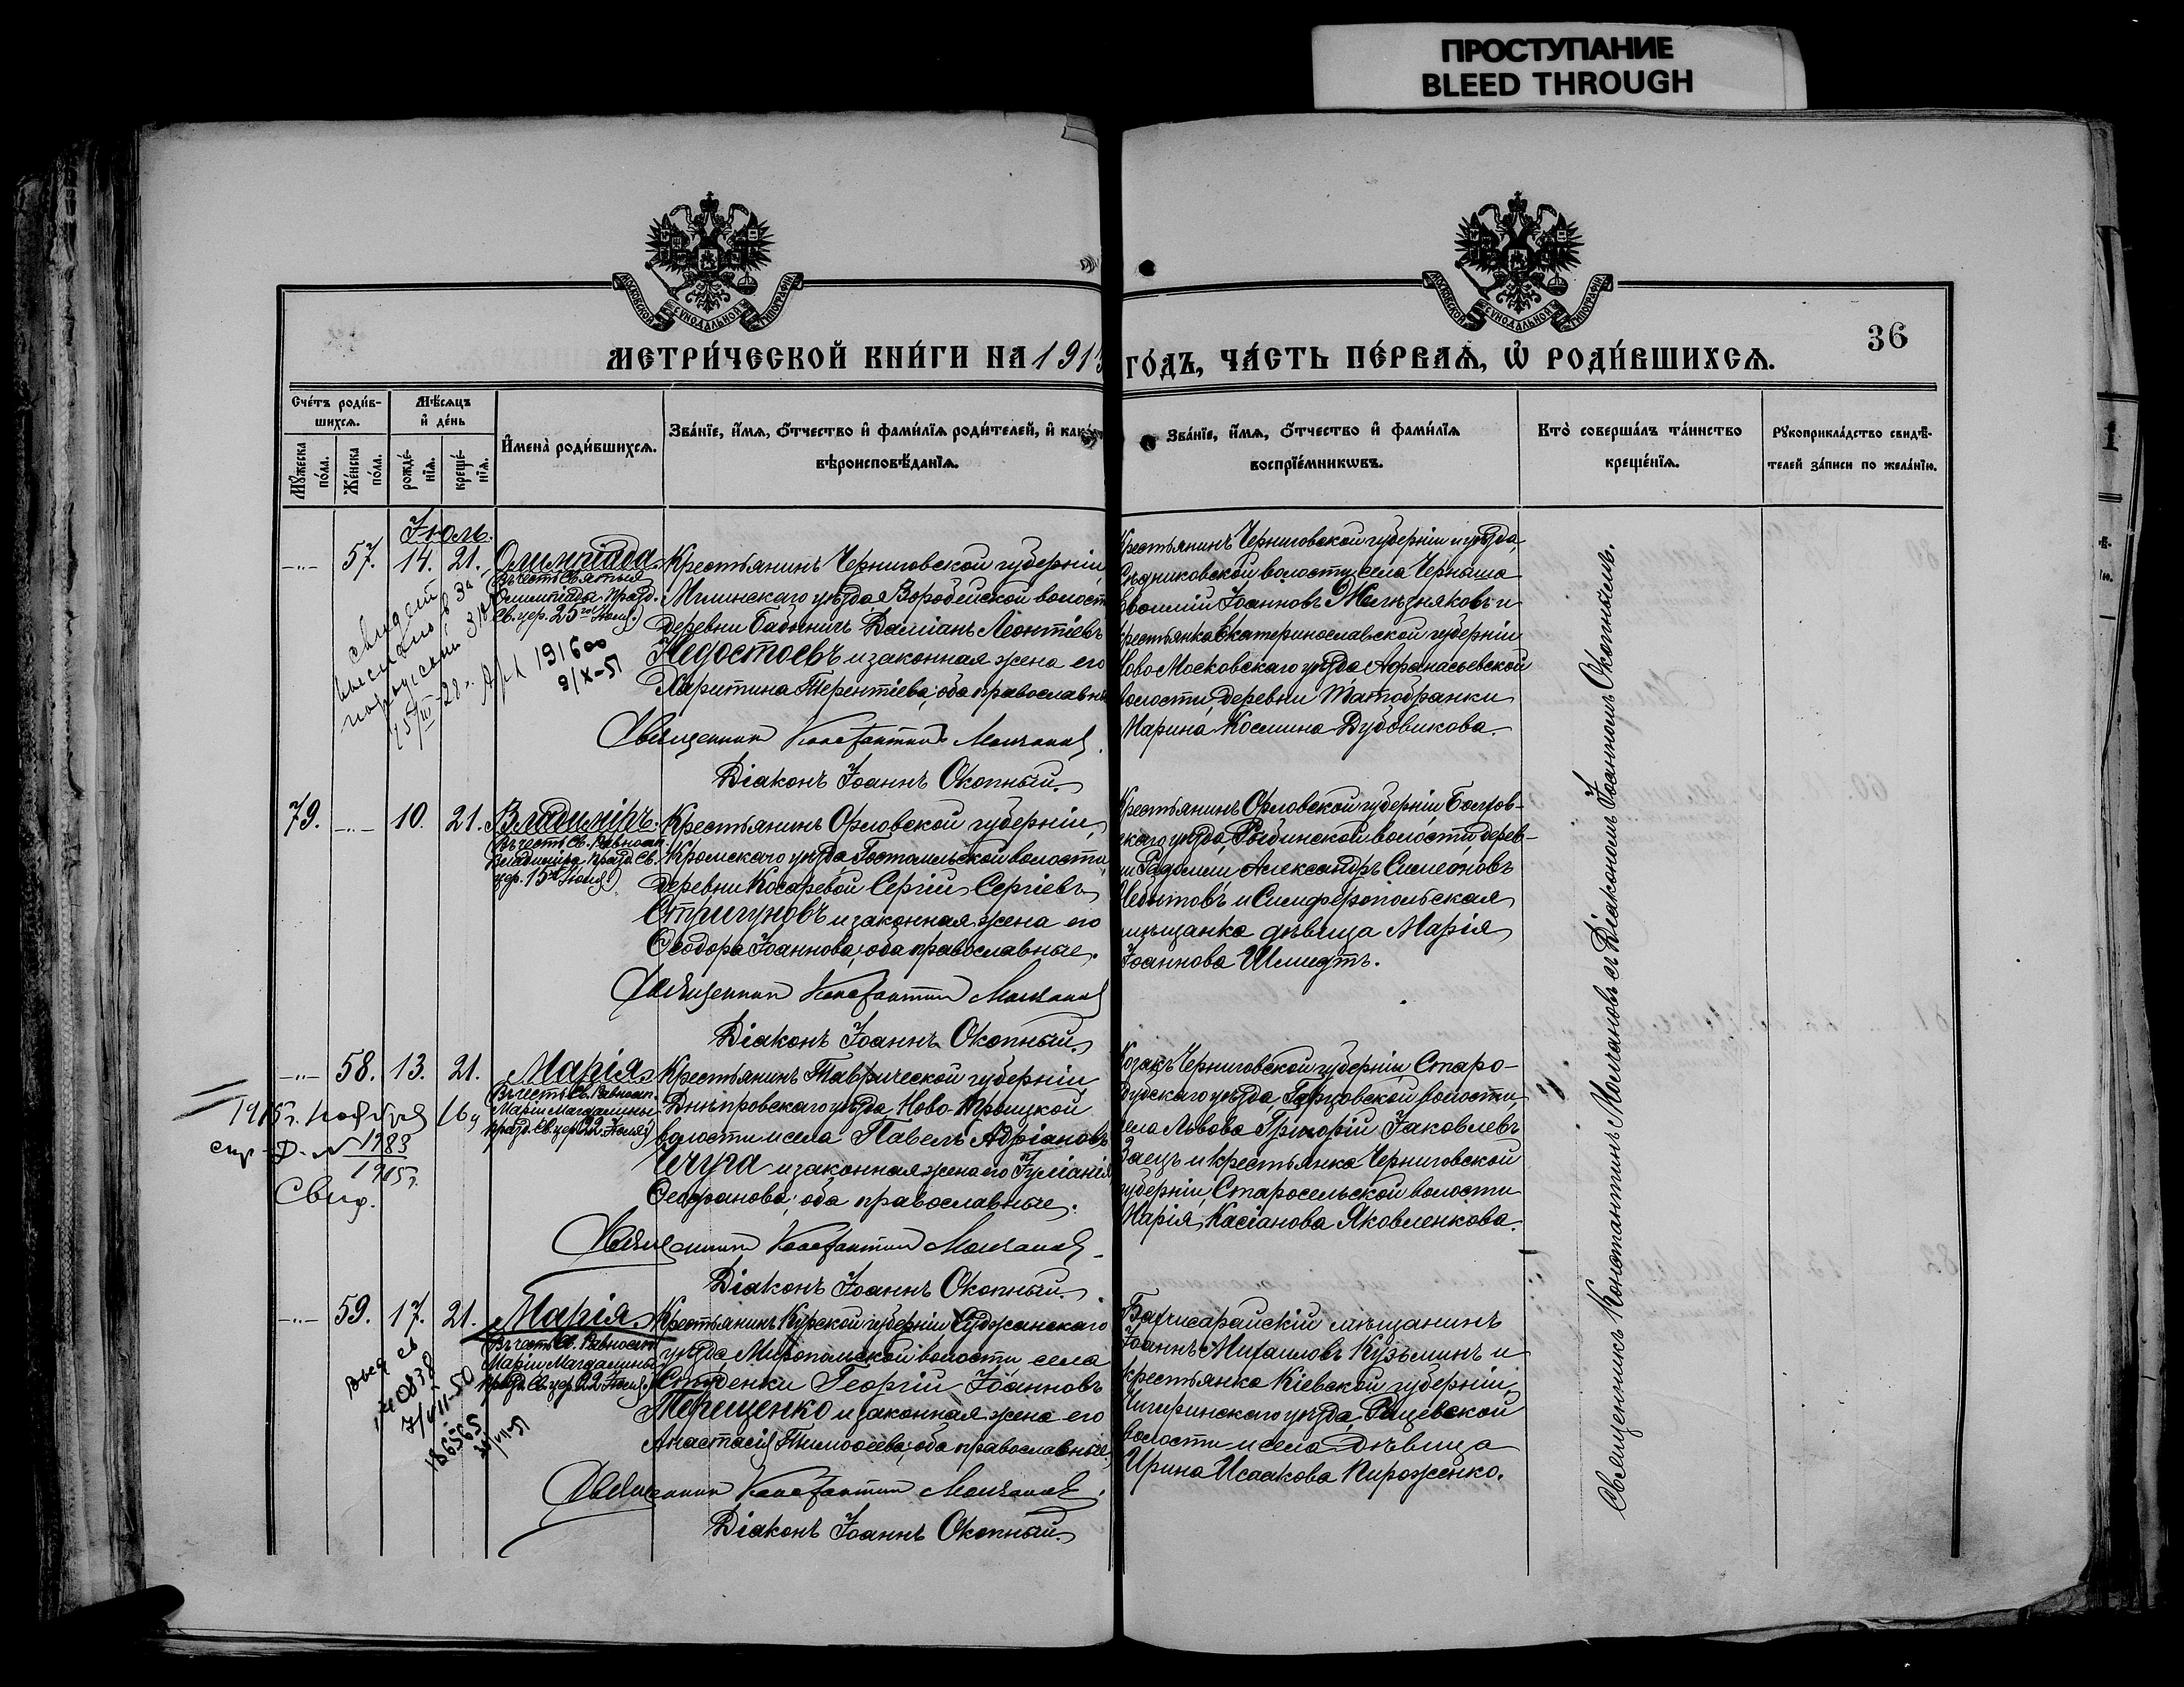 ПРОСТУПАНИЕ
BLEED THROUGH
МОСКОВСКОЙ СѴНОДАЛЬНОЙ ТИПОГРАФІИ
МОСКОВСКОЙ СѴНОДАЛЬНОЙ ТИПОГРАФІИ
36
МЕТРИ́ЧЕСКОЙ КНИ́ГИ НА 191
ГО́ДЪ, ЧА́СТЬ ПЕ́РВАѦ, Ѡ҆ РОДИ́ВШИХСѦ.
Сче́тъ роди́в-
шихсѧ.
Мꙋ́жеска по́ла.
Же́нска по́ла.
Мѣ́сѧцъ
и҆ де́нь
рожде́-
нїѧ.
креще́-
нїѧ.
И҆мена̀ роди́вшихсѧ.
Зва́нїе, и҆́мѧ, ѻ҆́тчество и҆ фами́лїѧ роди́телей, и҆ како́
вѣроисповѣ́данїѧ.
Зва́нїе, и҆́мѧ, ѻ҆́тчество и҆ фами́лїѧ
воспрїе́мникѡвъ.
Кто̀ соверша́лъ та́инство
креще́нїѧ.
Рꙋкоприкла́дство свидѣ́-
телей за́писи по жела́нїю.
Іюль.
57. 14. 21. Олимпіада
Въ честь Святыя
Олимпіады. Празд.
Св. цер. 25го Іюля)
Крестьянинъ Черниговской губерніи
Мглинскаго уѣзда Воробейской волост
деревни Бабиничъ Даміанъ Леонтіевъ
Недостоевъ и законная жена его
Харитина Терентіева; оба православн
Священникъ Константинъ Молчановъ
Діаконъ Іоаннъ Окопный.
Крестьянинъ Черниговской губерніи и уѣзда,
волости, села Черныша
Іоанновъ Желѣзняковъ и
крестьянка Екатеринославской губерніи
Ново Московскаго уѣзда Афанасьевской
волости, деревни
Марина Космина Дубовикова.
191600
9/X-51
79. 10. 21. Владиміръ.
Въ честь Св. Равноап.
Владиміра празд. Св.
цер. 15го Іюля)
Крестьянинъ Орловской губерніи,
Кромскаго уѣзда Гостомльской волости,
деревни Косаревой Сергій Сергіевъ
Стригуновъ и законная жена его
Ѳеодора Іоаннова; оба православные.
Священникъ Константинъ Молчановъ
Діаконъ Іоаннъ Окопный.
Крестьянинъ Орловской губерніи Болхов-
скаго уѣзда, волости дерев-
ни Александръ Симеоновъ
Чеботовъ и Симферопольская
мѣщанка дѣвица Марія
Іоаннова Шмидтъ.
58. 13. 21. Марія
Въ честь Св. Равноап.
Маріи Магдалины
празд. Св. цер. 22 Іюля)
Крестьянинъ Таврической губерніи
Днѣпровскаго уѣзда, Ново-Троицкой
волости и села Павелъ Адріановъ
Чуга и законная жена его Іуліанія
Ѳеофанова; оба православные.
Священникъ Константинъ Молчановъ
Діаконъ Іоаннъ Окопный.
Козакъ Черниговской губерніи, Старо-
дубскаго уѣзда, волости
села Львова Григорій Іаковлевъ
Заецъ и крестьянка Черниговской
губерніи, Старосельской волости
Марія Касіанова Яковленкова.
1915г. Ноября 16
1983
1915г.
Свид.
59. 17. 21. Марія
Въ честь Св. Равноап.
Маріи Магдалины
празд. Св. цер. 22 Іюля)
Крестьянинъ Курской губерніи Суджанскаго
уѣзда, Миропольской волости села
Студенки Георгій Іоанновъ
Терещенко и законная жена его
Анастасія Тимоѳеева; оба православные.
Священникъ Константинъ Молчановъ
Діаконъ Іоаннъ Окопный.
Бахчисарайскій мѣщанинъ
Іоаннъ Михаиловъ Кузьминъ и
крестьянка Кіевской губерніи,
Чигиринскаго уѣзда,
волости и села дѣвица
Ирина Исаакова Пироженко.
Священникъ Константинъ Молчановъ съ Діакономъ Іоанномъ Окопнымъ.